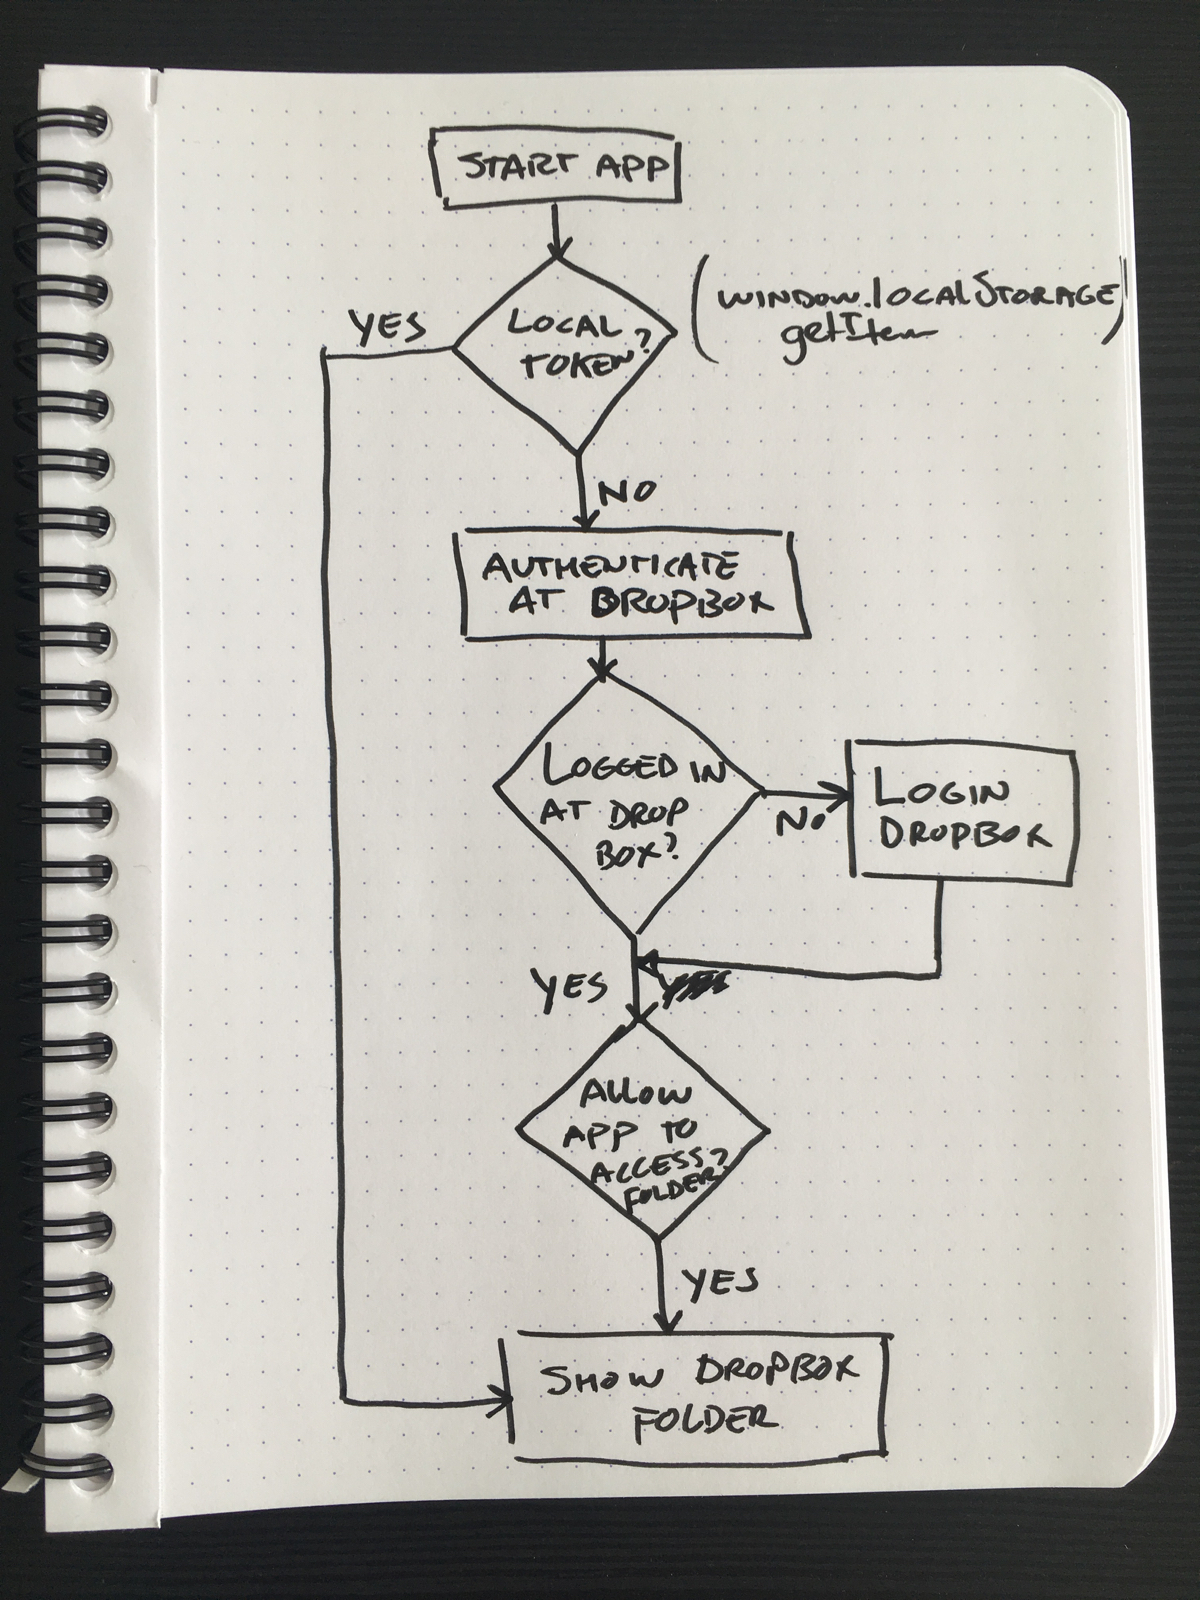 START APP
(WINDOW.LOCALSTORAGE
getItem)
YES
LOCAL
TOKEN?
NO
AUTHENTICATE
AT DROPBOX
LOGGED IN
AT DROP
BOX?
NO
LOGIN
DROPBOX
YES
YES
ALLOW
APP TO
ACCESS?
FOLDER
YES
SHOW DROPBOX
FOLDER